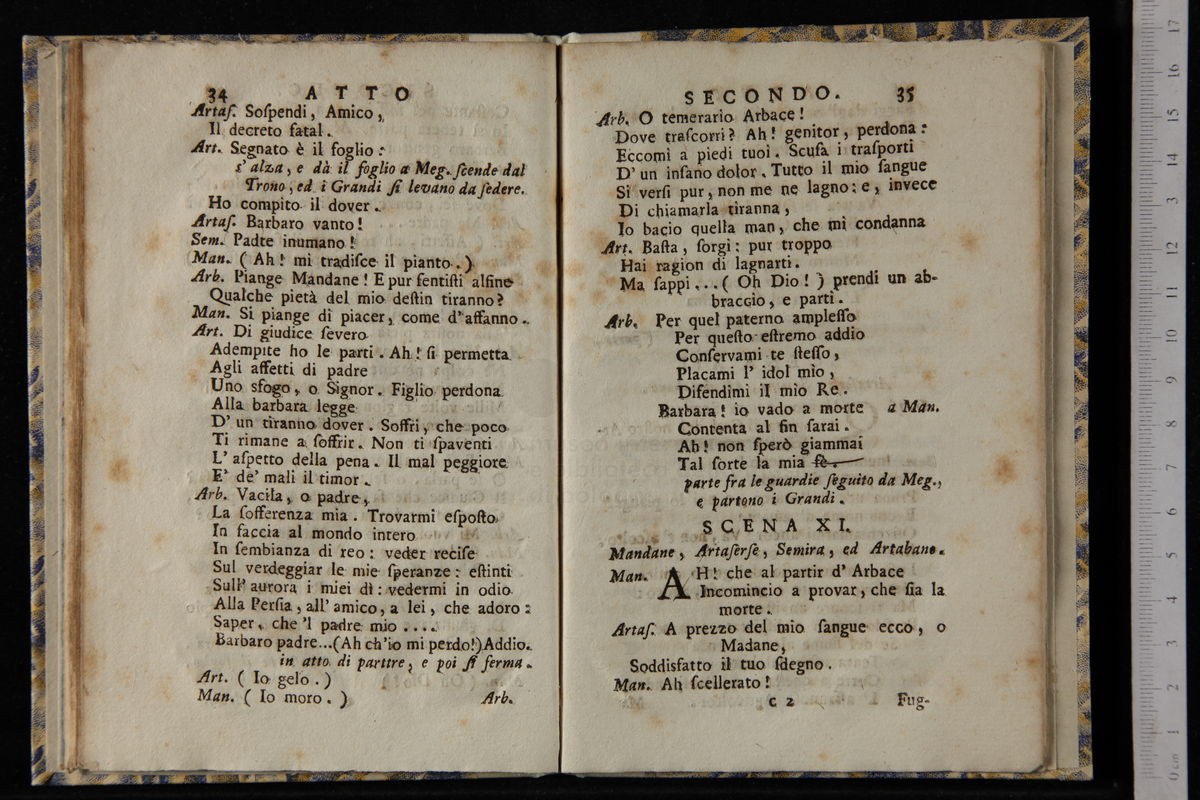 34 ATTO
Artaſ. Soſpendi, Amico,
Il decreto fatal.
Art. Segnato è il foglio:
s' alza, e dà il foglio a Meg. ſcende dal
Trono, ed i Grandi ſi levano da ſedere.
Ho compito il dover.
Artaſ. Barbaro vanto!
Sem. Padre inumano!
Man. (Ah! mi tradiſce il pianto.)
Arb. Piange Mandane! E pur ſentiſti alfine
Qualche pietà del mio deſtin tiranno?
Man. Si piange di piacer, come d'affanno.
Art. Di giudice ſevero
Adempite ho le parti. Ah! ſi permetta
Agli affetti di padre
Uno sfogo, o Signor. Figlio perdona
Alla barbara legge
D' un tiranno dover. Soffri, che poco
Ti rimane a ſoffrir. Non ti ſpaventi
L' aſpetto della pena. Il mal peggiore
E' de' mali il timor.
Arb. Vacila, o padre,
La ſofferenza mia. Trovarmi eſpoſto
In faccia al mondo intero
In ſembianza di reo: veder reciſe
Sul verdeggiar le mie ſperanze: eſtinti
Sull' aurora i miei dì: vedermi in odio
Alla Perſia, all' amico, a lei, che adoro:
Saper, che 'l padre mio ....
Barbaro padre...(Ah ch'io mi perdo!) Addio.
in atto di partire, e poi ſi ferma.
Art. (Io gelo.)
Man. (Io moro.) Arb.
SECONDO. 35
Arb. O temerario Arbace!
Dove traſcorri? Ah! genitor, perdona:
Eccomi a piedi tuoi. Scuſa i traſporti
D' un inſano dolor. Tutto il mio ſangue
Si verſi pur, non me ne lagno: e, invece
Di chiamarla tiranna,
Io bacio quella man, che mi condanna
Art. Baſta, ſorgi: pur troppo
Hai ragion di lagnarti.
Ma ſappi...(Oh Dio!) prendi un ab-
braccio, e parti.
Arb. Per quel paterno ampleſſo
Per queſto eſtremo addio
Conſervami te ſteſſo,
Placami l' idol mio,
Difendimi il mio Re.
Barbara! io vado a morte a Man.
Contenta al fin ſarai.
Ah! non ſperò giammai
Tal ſorte la mia fè.
parte fra le guardie ſeguito da Meg.,
e partono i Grandi.
SCENA XI.
Mandane, Artaſerſe, Semira, ed Artabane.
Man. AH! che al partir d' Arbace
Incomincio a provar, che ſia la
morte.
Artaſ. A prezzo del mio ſangue ecco, o
Madane,
Soddisfatto il tuo ſdegno.
Man. Ah ſcellerato!
C 2 Fug-
0 cm 1 2 3 4 5 6 7 8 9 10 11 12 13 14 15 16 17